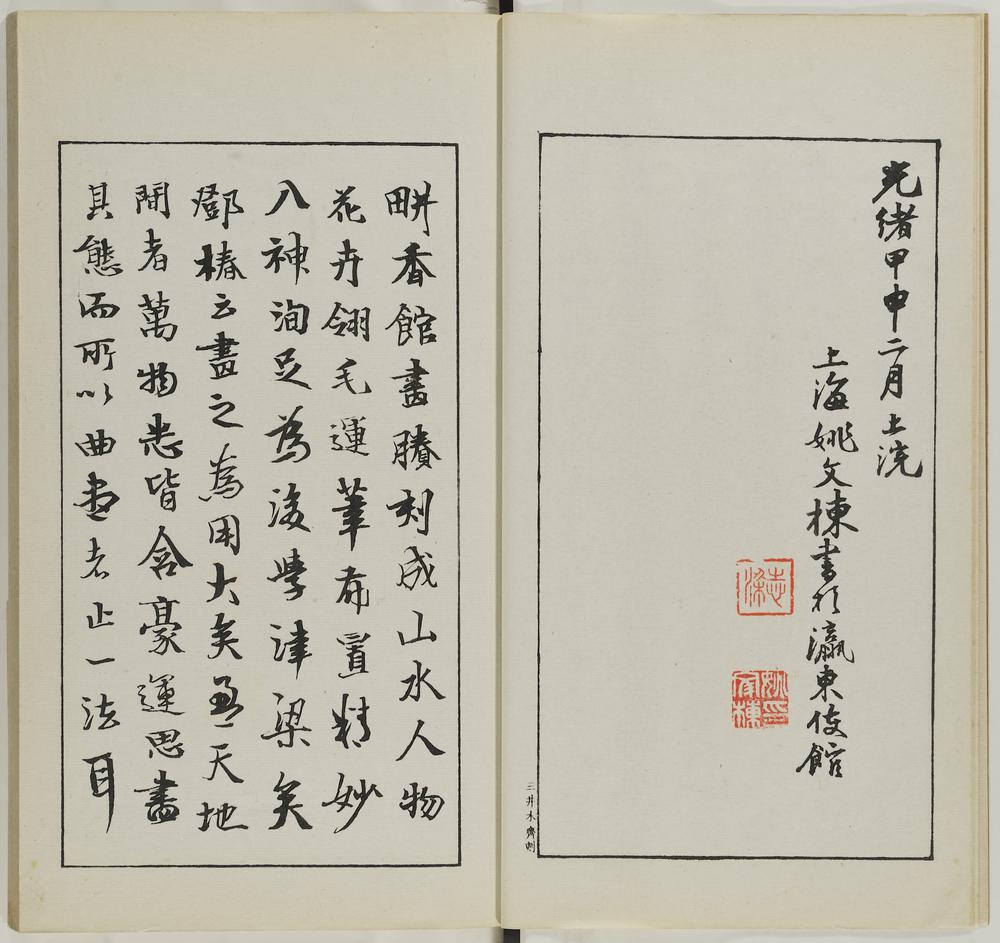 光緒甲申二月上浣
上海姚文棟書於瀛東使館
志梁
姚印文棟
三井木齋刻
畊香館畫賸刻成山水人物
花卉翎毛運筆布置精妙
入神洵足為後學津梁矣
鄧椿云畫之為用大矣盈天地
間者萬物悉皆含豪運思畫
其態而所以曲盡者止一法耳